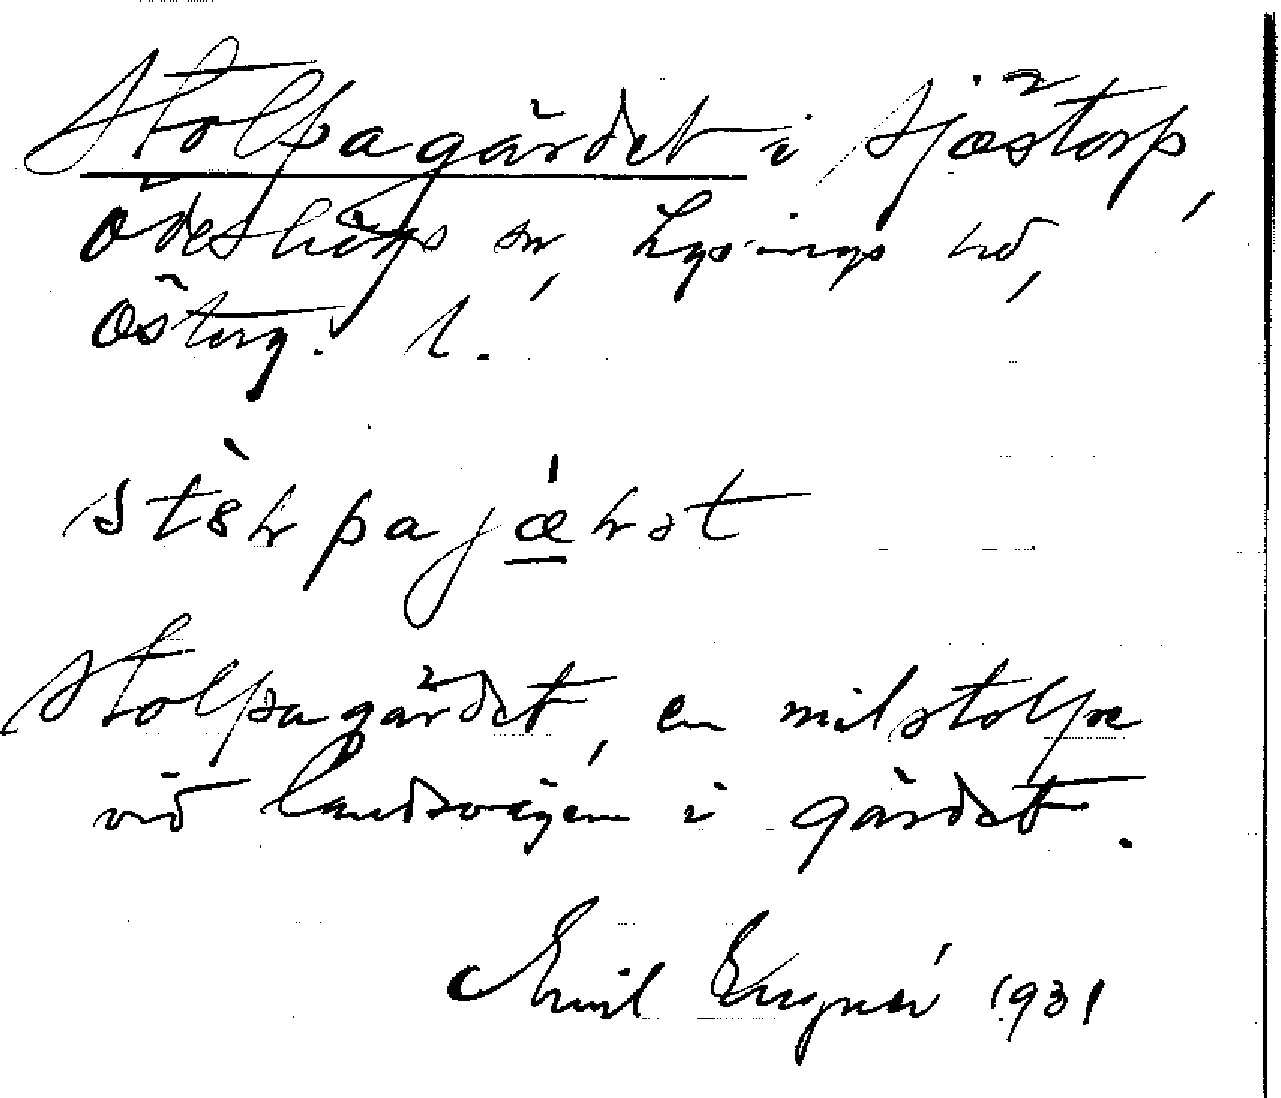 Stolpagärdet i Sjöstorp,
Ödeshögs sn, Lysings hd,
Österg. l.
Stolpagärdet, en milstolpe
vid landsvägen i gärdet.
Emil 1931